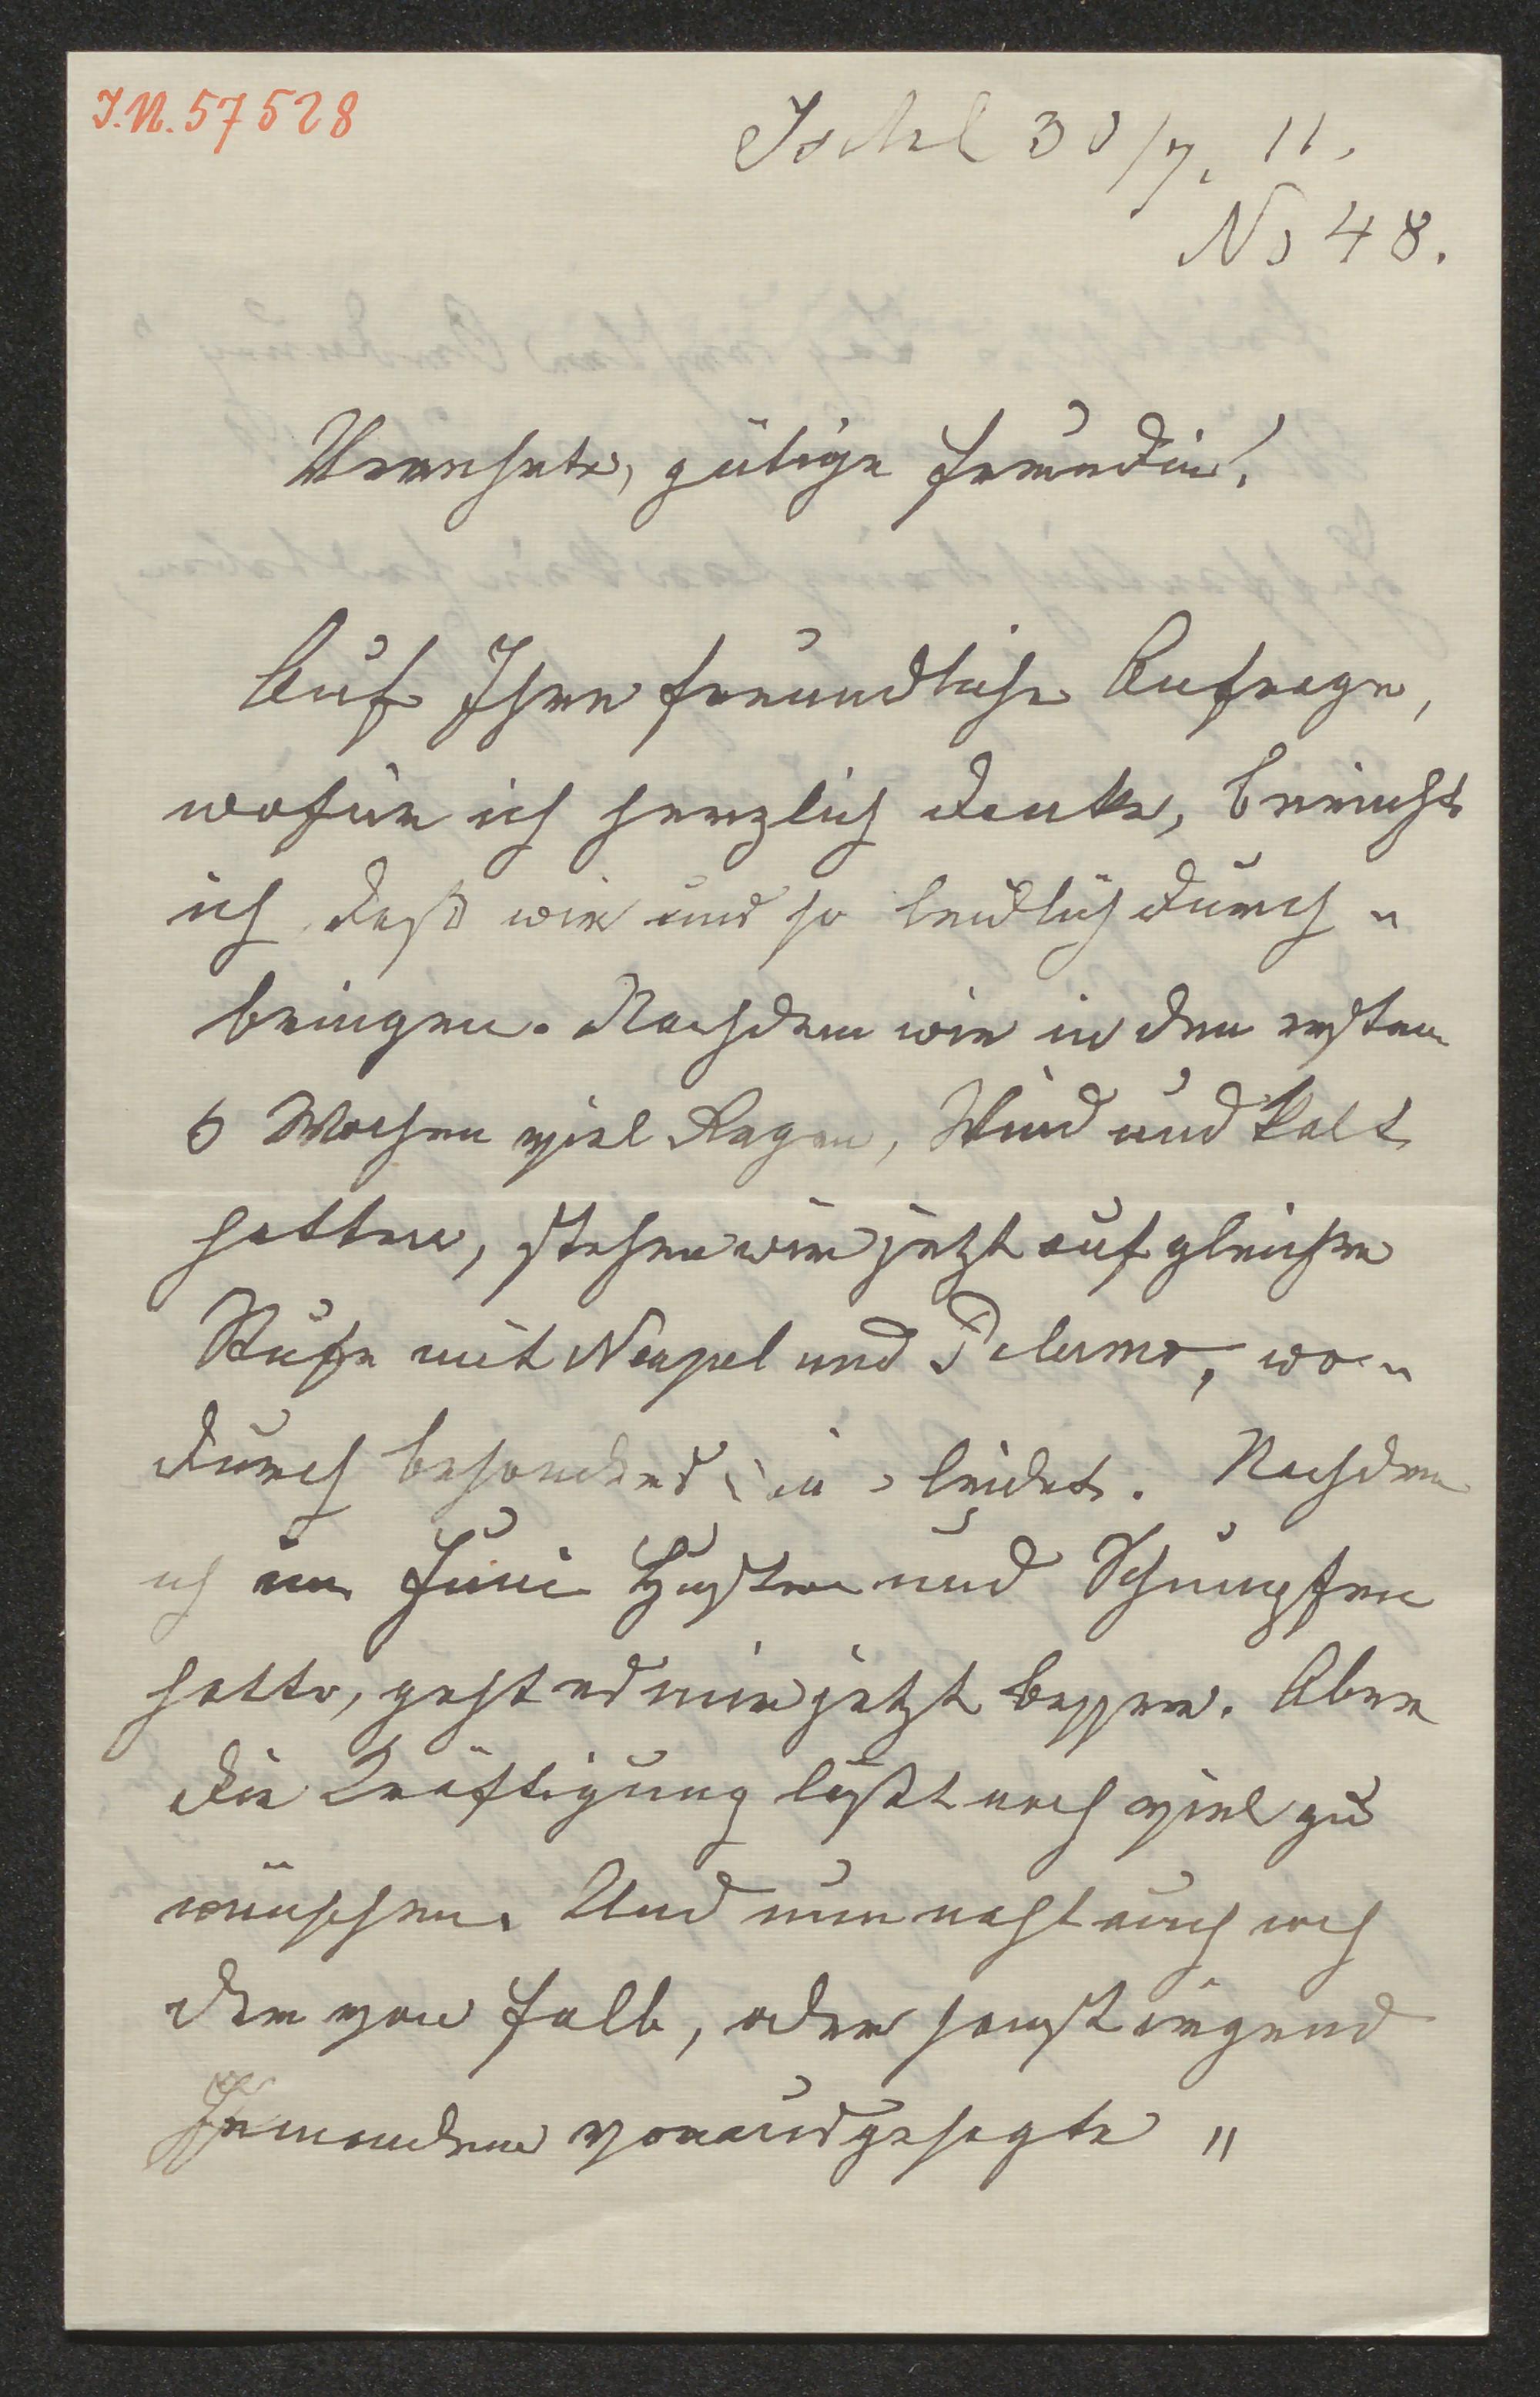 I.N. 57528
Ischl 30/7. 11.
No 48.
Verehrte, gütige Freundin!
Auf Ihre freundliche Anfrage,
wofür ich herzlich danke, bericht
ich, daß wir uns so leidlich durch-
bringen. Nachdem wir in den ersten
6 Wochen viel Regen, Wind und Kält
hatten, stehen wir jetzt auf gleicher
Stufe mit Neapel und Palermo, wo-
durch besonders leidet. Nachdem
ich im Juni Husten und Schnupfen
hatte, geht es mir jetzt besser. Aber
die Kräftigung läßt noch viel zu
wünschen. Und nun naht auch noch
der von Falb, oder sonst irgend
Jemandem vorausgesagte "